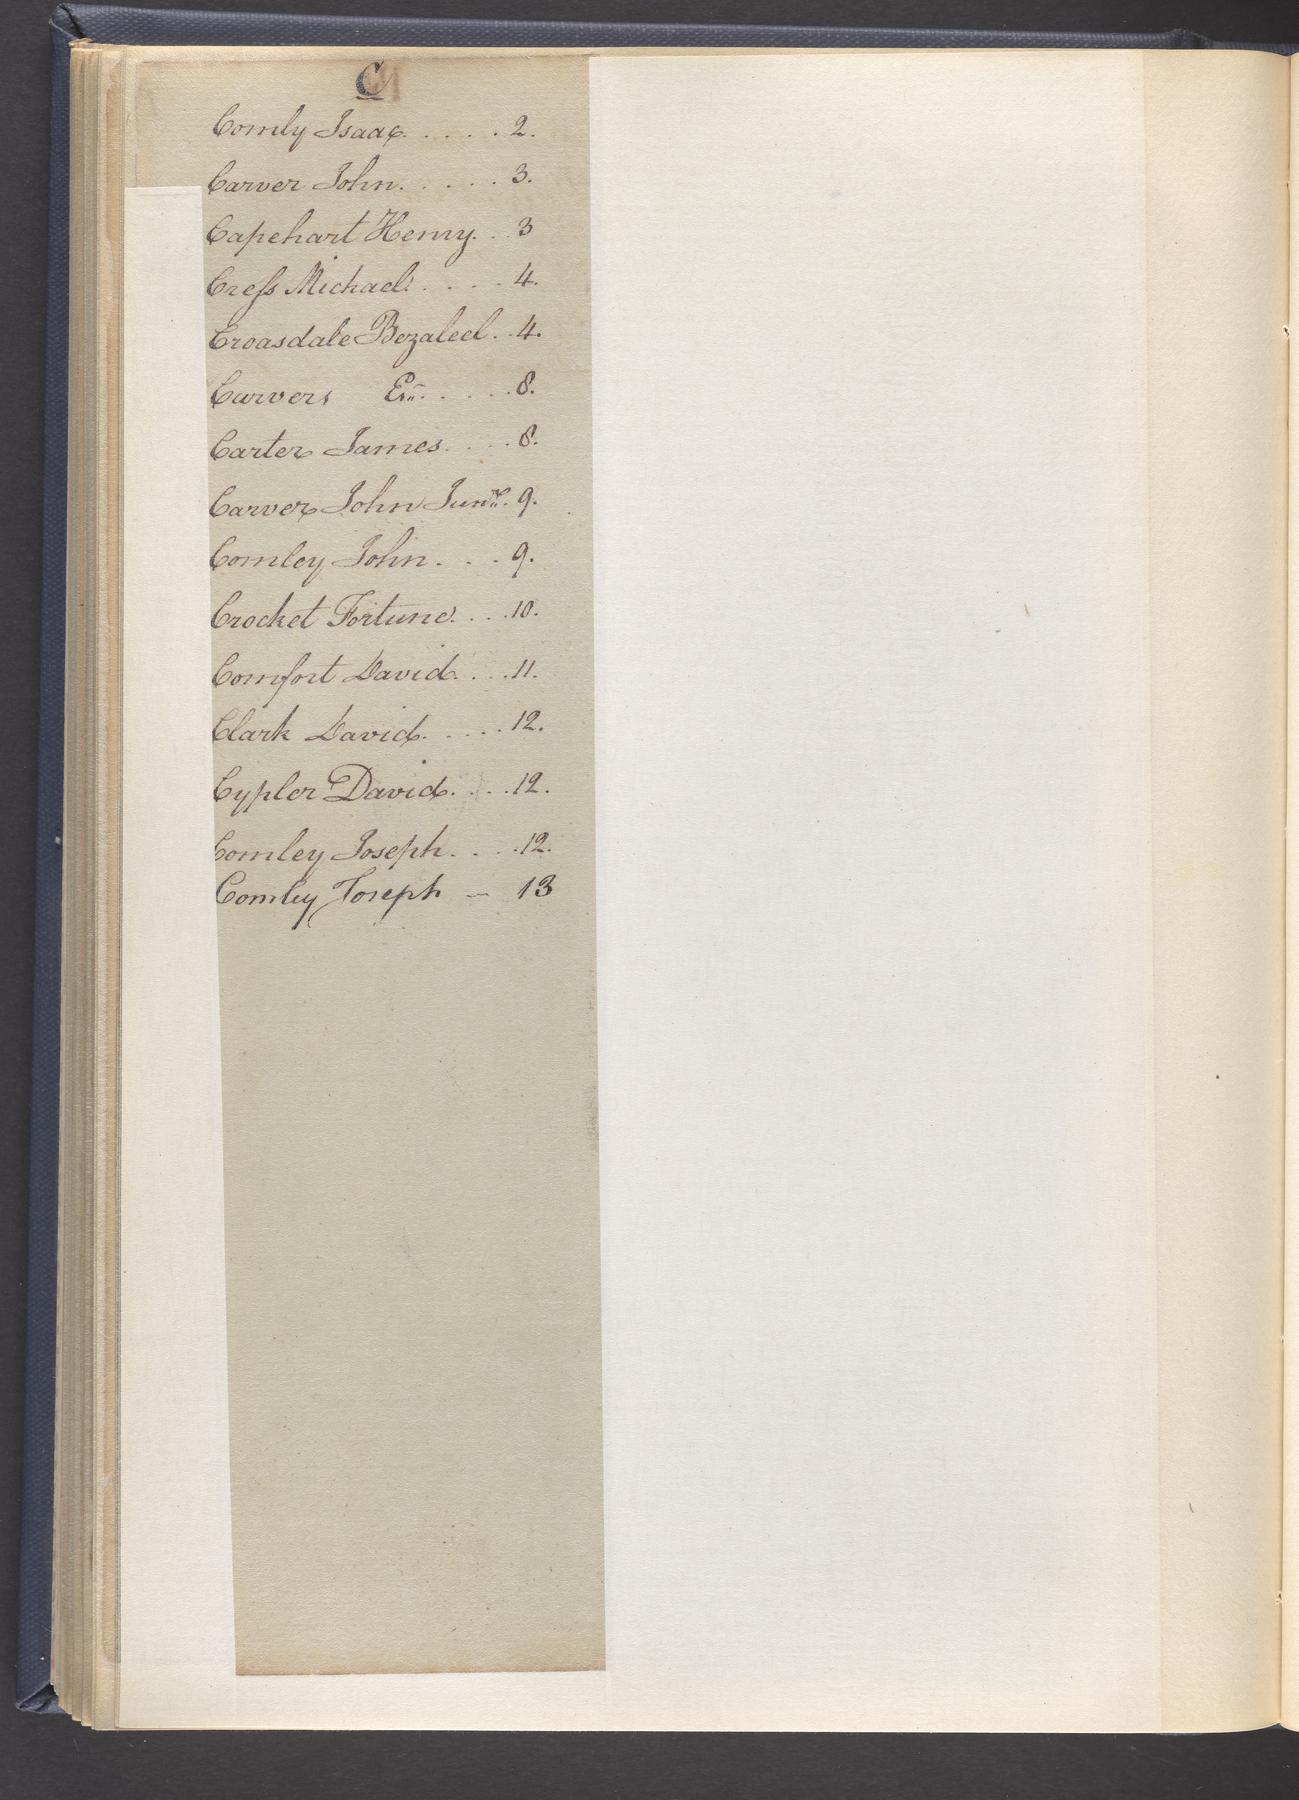 C
Comly Isaac. . . . . 2.
Carver John. . . . . 3.
Capehart Henry. . . 3
Cress Michael. . . . . 4.
Croasdale Bezaleel. . 4.
Carvers Exn. . . . . 8.
Carter James. . . . 8.
Carver John Junr. 9.
Comley John. . . . 9.
Crocket Fortune. . . 10.
Comfort David. . . . 11.
Clark David. . . . . 12.
Cypler David. . . . 12.
Comley Joseph. . . . 12.
Comley Joseph — 13